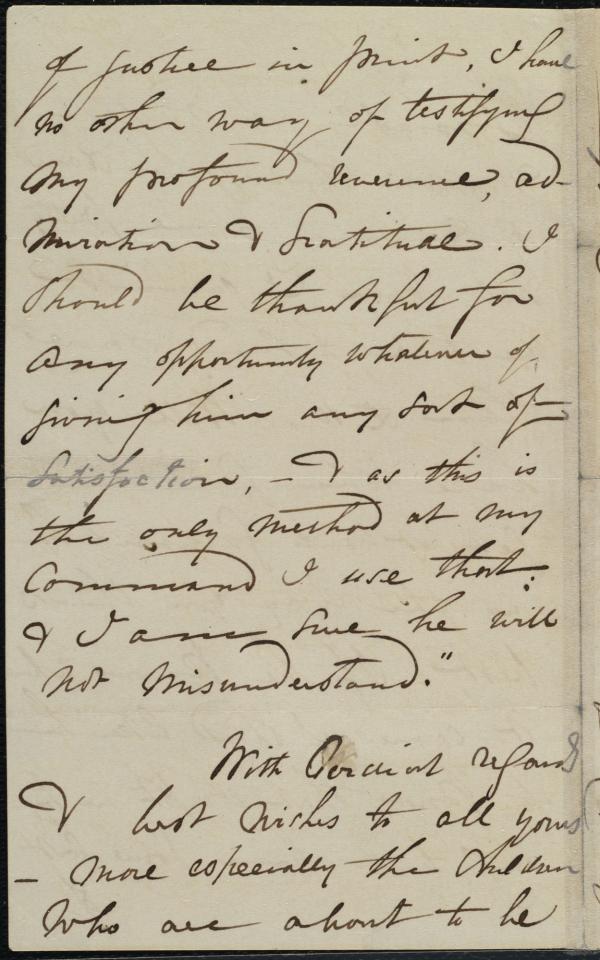 of justice in print, I have
no other way of testifying
my profound reverence, ad-
miration & gratitude. I
should be thankful for
any opportunity whatever of
giving him any sort of
satisfaction, - & as this is
the only method at my
command I use that:
& I am sure he will
not misunderstand."
With Cordial regards
& best wishes to all yours
- more especially the children
who are about to be